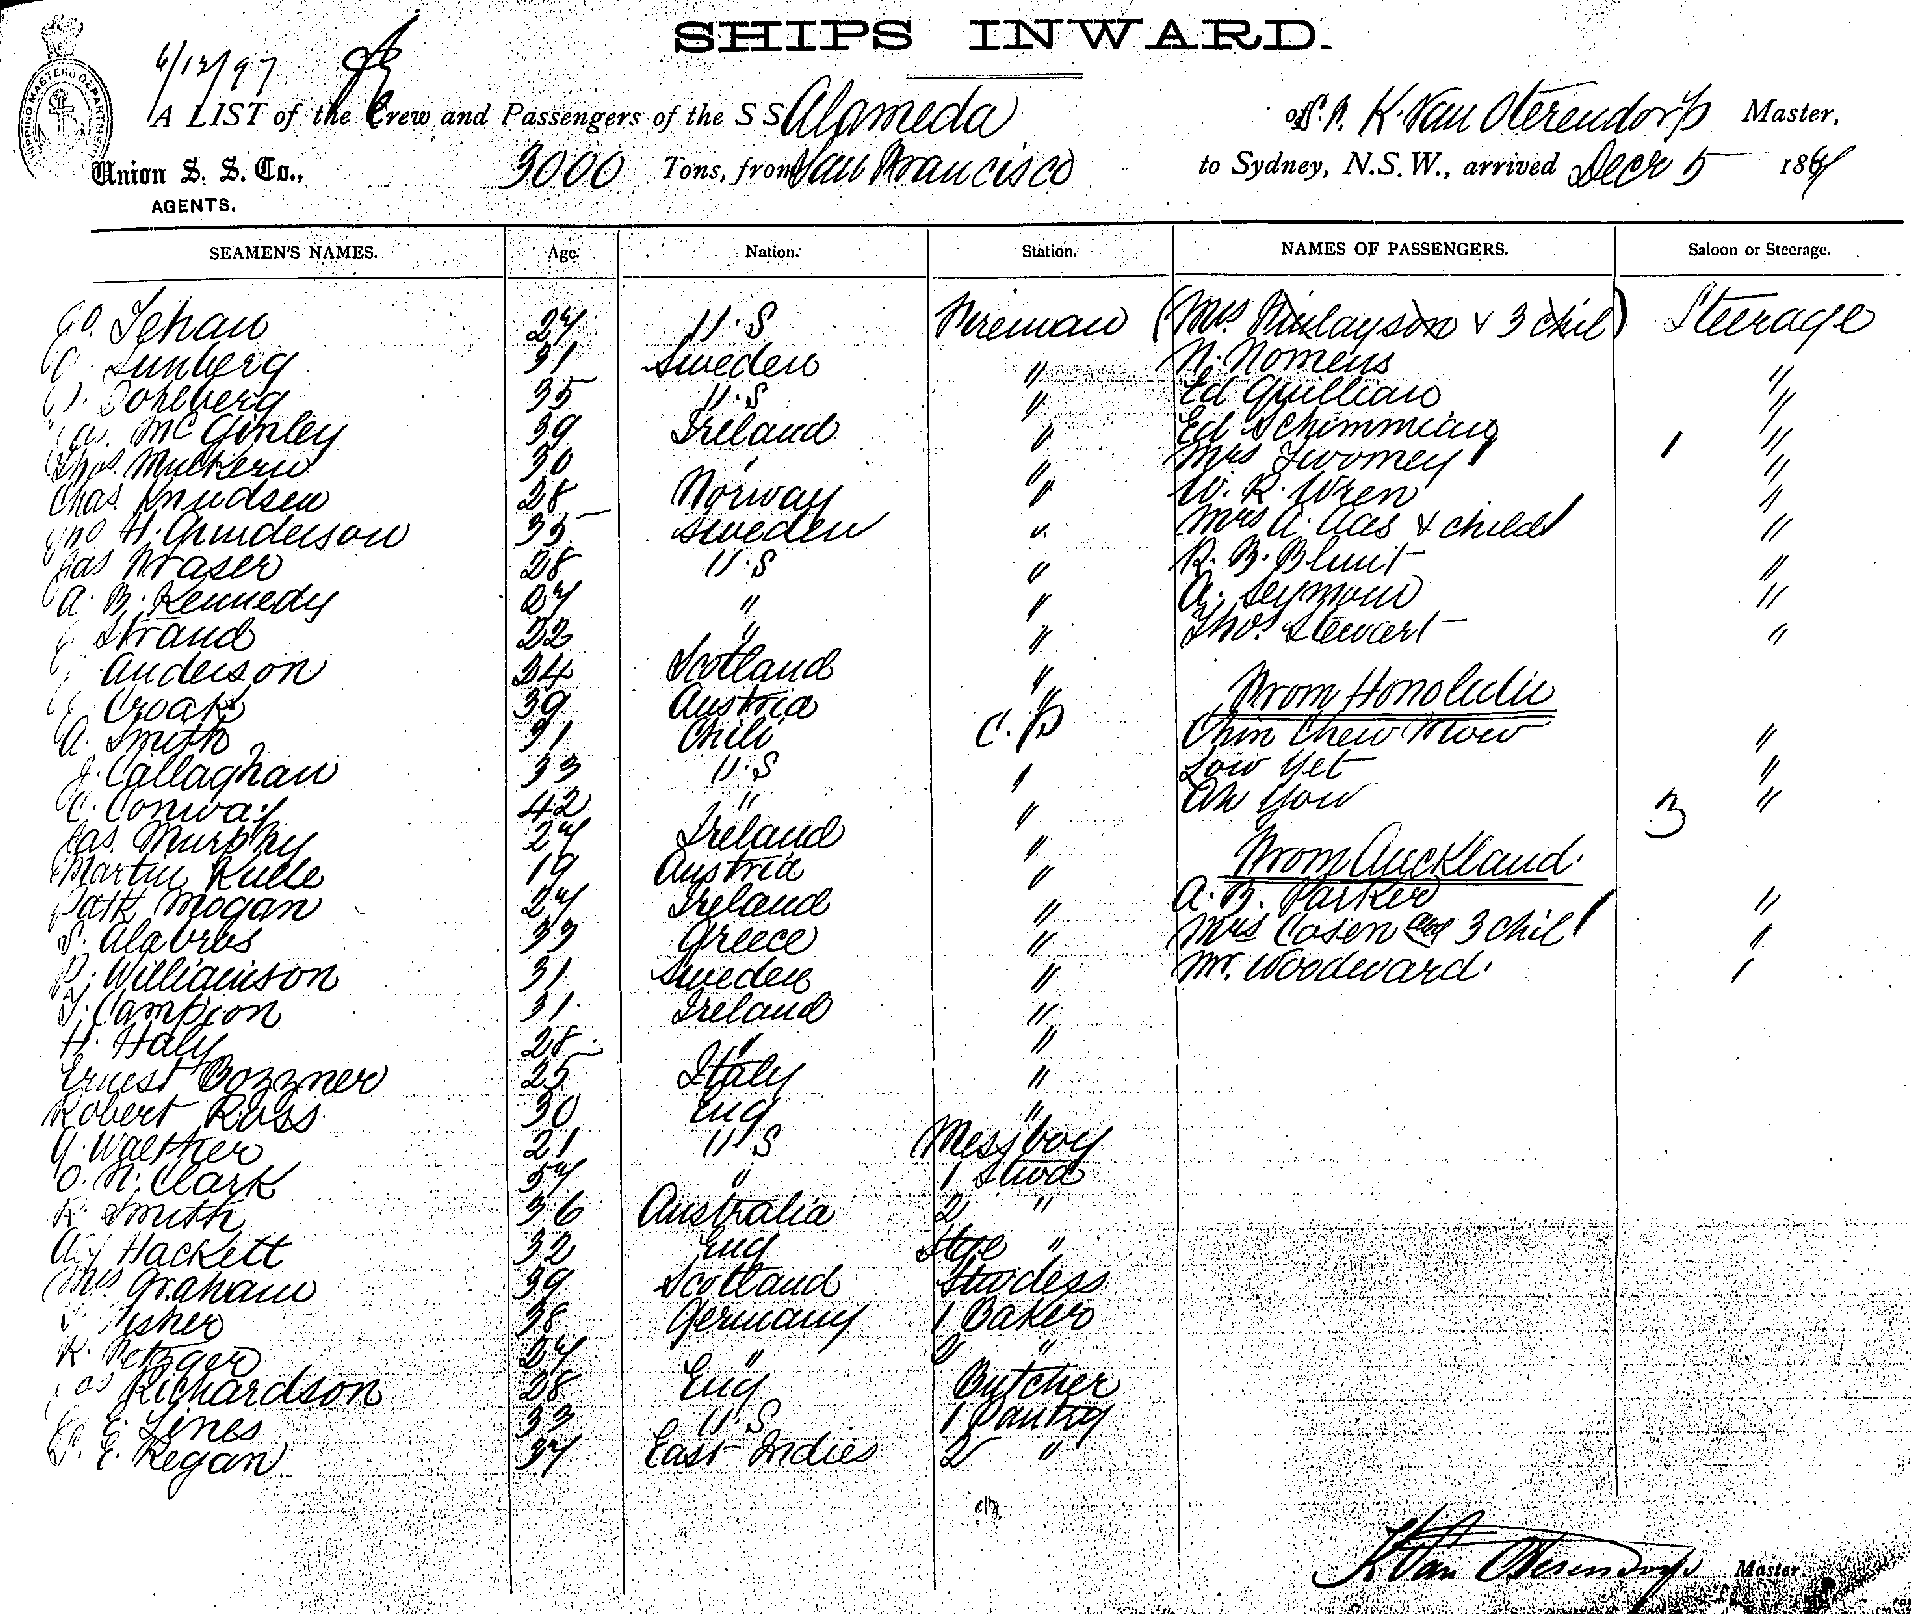 SHIPS INWARD.
6/12/97
SHIPPING MASTERS DEPARTMENT
A LIST of the Crew and Passengers of the S S Alameda of S.F. K. Van Oterendorp Master,
Union S. S. Co., 3000 Tons, from San Francisco to Sydney, N.S.W., arrived Decr 5 189
AGENTS.
SEAMEN'S NAMES. Age. Nation. Station. NAMES OF PASSENGERS. Saloon or Steerage.
Jehan 27 U.S Fireman (Mrs Finlayson & 3 chil) Steerage
Lunberg 31 Sweden " N. Nomens "
Dohlberg 35 U.S " Ed Quillian "
McGinley 39 Ireland " Ed Schimming 1 "
Thos. Muckern 30 " " Mrs Twomey "
Chas Knudsen 28 Norway " W. R. Wren "
Jno H. Gunderson 35 Sweden " Mrs A. Aes & child "
Jas Fraser 28 U.S " R. B. Blunt "
A. B. Kennedy 27 " " A. Seymour "
Strand 22 " " Thos. Stewart "
Anderson 34 Scotland "
Croak 39 Austria " From Honolulu
A. Smith 31 Chili C. P Chin Chew Mow "
J. Callaghan 33 U.S " Low Yet "
C. Conway 42 " " Ah You 3 "
Jas. Murphy 27 Ireland "
Martin Kulle 19 Austria " From Auckland
Patk Mogan 27 Ireland " A. B. Parker "
S. Alavros 33 Greece " Mrs Cosen and 3 chil "
P. Williamson 31 Sweden " Mr. Woodward. "
T. Campion 31 Ireland "
H. Haly 28 " "
Ernest Bozzner 25 Italy "
Robert Ross 30 Eng "
G. Walther 21 U S Messboy
O. N. Clark 57 " 1 Stwd
K. Smith 36 Australia 2 "
A. J Hackett 32 Eng Stge "
Mrs Graham 39 Scotland Stwdess
Fisher 38 Germany 1 Baker
K. Metzger 27 " 2 "
Jas Richardson 28 Eng Butcher
E. Lines 33 U.S 1 Pantry
P. E. Regan 37 East Indies 2 "
K Van Oterendorp Master